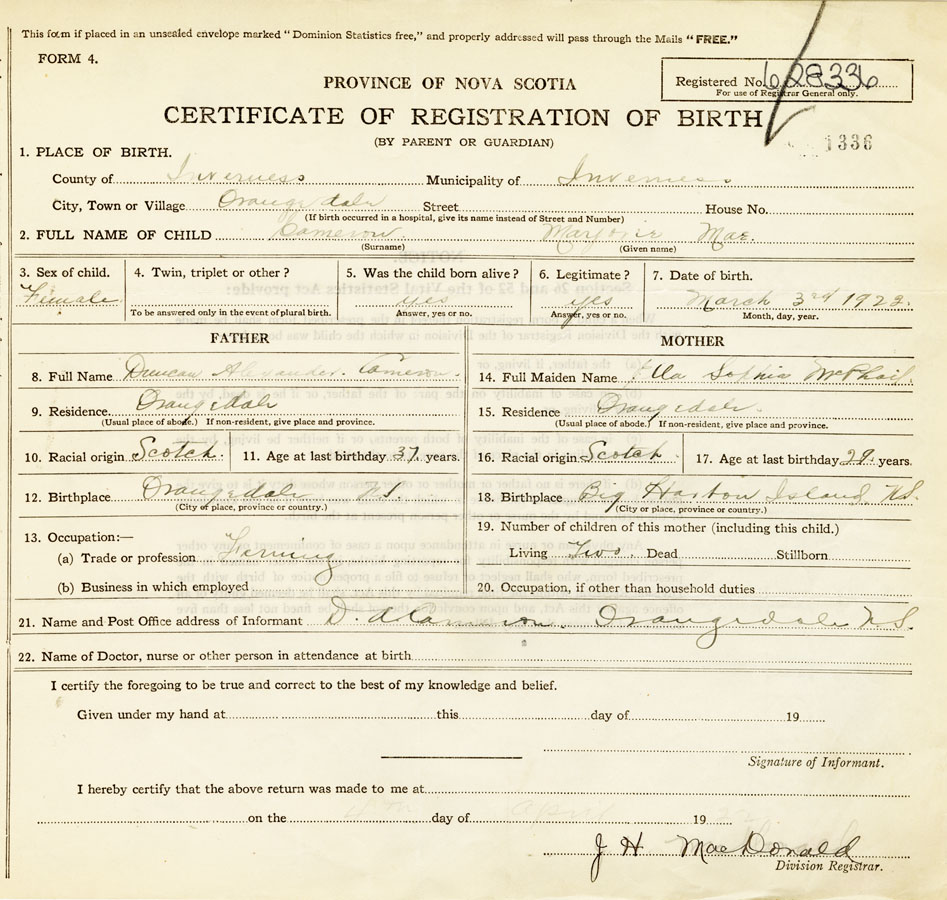 This form if placed in an unsealed envelope marked "Dominion Statistics free," and properly addressed will pass through the Mails "FREE."
FORM 4.
PROVINCE OF NOVA SCOTIA
Registered No. 628336
For use of Registrar General only.
CERTIFICATE OF REGISTRATION OF BIRTH
(BY PARENT OR GUARDIAN)
1336
1. PLACE OF BIRTH.
County of Inverness Municipality of Inverness
City, Town or Village Orangedale Street House No.
(If birth occurred in a hospital, give its name instead of Street and Number)
2. FULL NAME OF CHILD Cameron Marjorie Mae.
(Surname) (Given name)
3. Sex of child. 4. Twin, triplet or other? 5. Was the child born alive? 6. Legitimate? 7. Date of birth.
Female yes yes March 3rd 1922.
To be answered only in the event of plural birth. Answer, yes or no. Answer, yes or no. Month, day, year.
FATHER MOTHER
8. Full Name Duncan Alexander Cameron. 14. Full Maiden Name Sophia McPhail
9. Residence Orangedale 15. Residence Orangedale
(Usual place of abode.) If non-resident, give place and province. (Usual place of abode.) If non-resident, give place and province.
10. Racial origin Scotch. 11. Age at last birthday 37 years. 16. Racial origin Scotch. 17. Age at last birthday years.
12. Birthplace Orangedale N.S. 18. Birthplace Big Harbor Island N.S.
(City or place, province or country.) (City or place, province or country.)
13. Occupation:— 19. Number of children of this mother (including this child.)
(a) Trade or profession Farming Living Two Dead Stillborn
(b) Business in which employed 20. Occupation, if other than household duties
21. Name and Post Office address of Informant D. A Cameron. Orangedale N.S.
22. Name of Doctor, nurse or other person in attendance at birth
I certify the foregoing to be true and correct to the best of my knowledge and belief.
Given under my hand at this day of 19
Signature of Informant.
I hereby certify that the above return was made to me at
on the 4th day of April 19 22
J H MacDonald
Division Registrar.